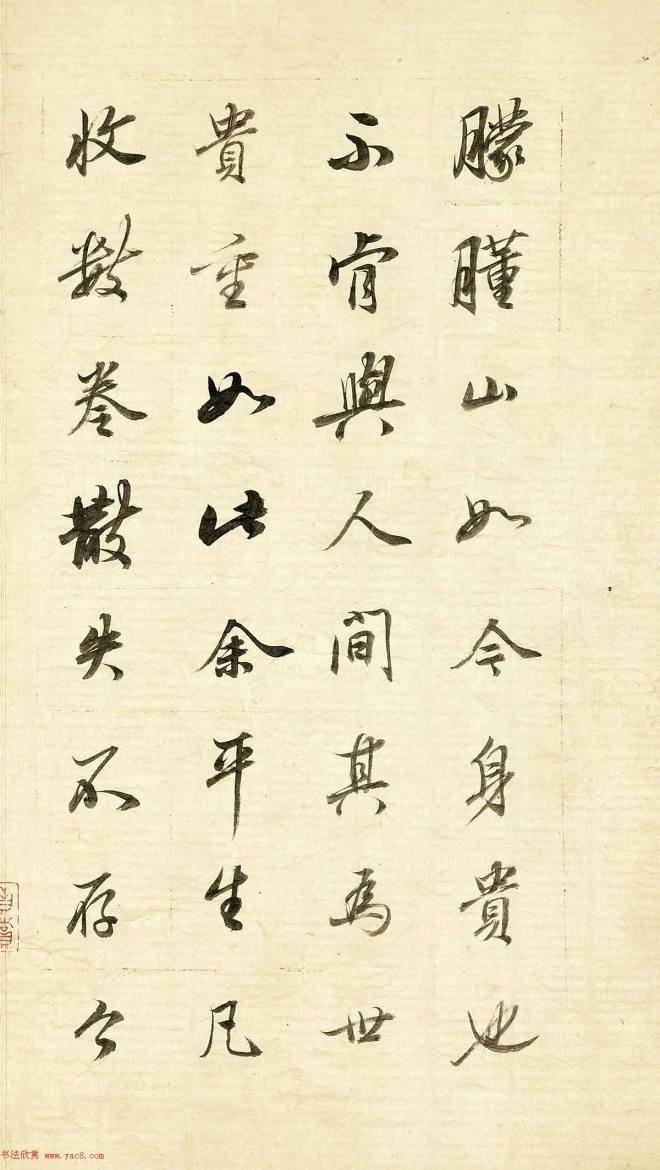 朦朣山如今身貴也
不肯與人間其為世
貴重如此余平生凡
收數卷散失不存今
书法欣赏 www.yac8.com